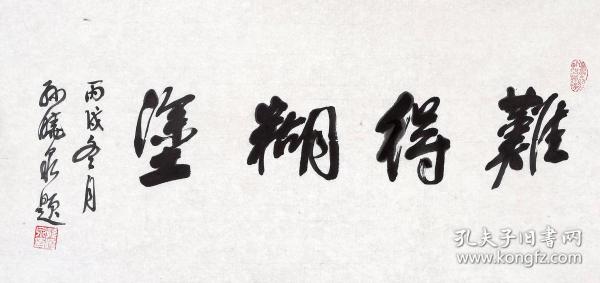 難得糊塗
丙戌冬月
孙晓泉题
孔夫子旧书网
www.kongfz.com